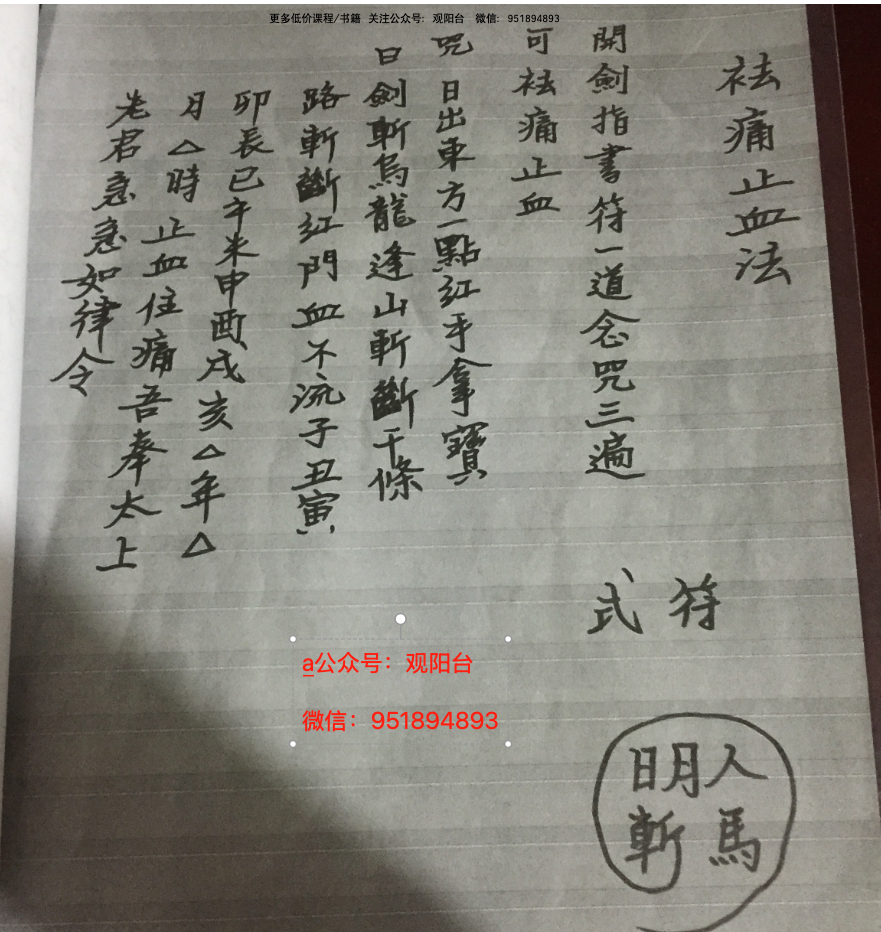 更多低价课程/书籍 关注公众号：观阳台 微信：951894893
祛痛止血法
開劍指書符一道念咒三遍
可祛痛止血
咒曰日出東方一點紅手拿寶
劍斬烏龍逢山斬斷千條
路斬斷紅門血不流子丑寅
卯辰巳午未申酉戌亥△年△
月△時止血住痛吾奉太上
老君急急如律令
符式
人馬
明斬
a公众号：观阳台
微信：951894893